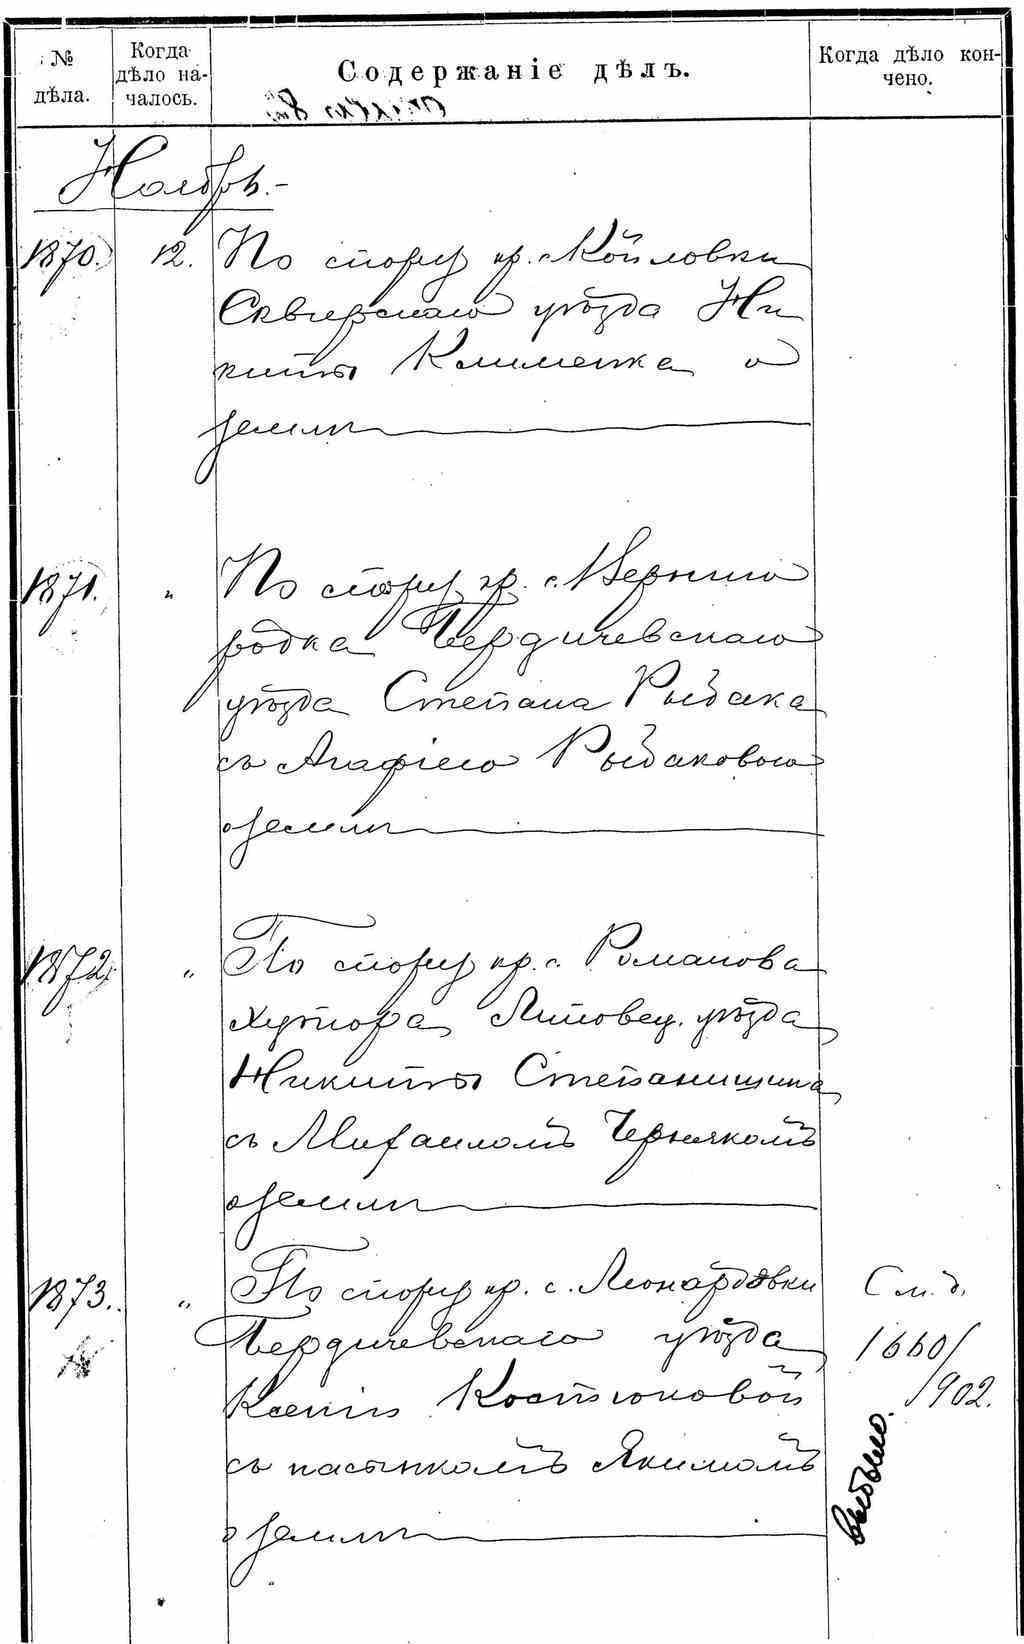 № дѣла.
Когда дѣло на-
чалось.
Содержаніе дѣлъ.
Когда дѣло кон-
чено.
Ноябрь.-
1870. 12. По спору кр. с. Койловки
Сквирскаго уѣзда Ни
киты Клименка о
землѣ
1871. " По спору кр. с. Верниго
родка Бердичевскаго
уѣзда Степана Рыбака
съ Агафіею Рыбаковою
о землѣ
1872. " По спору кр. с. Романова
хутора Липовец. уѣзда
Никиты Степанишина
съ Михаиломъ Чернякомъ
о землѣ
1873. " По спору кр. с. Леонардовки
Бердичевскаго уѣзда
Ксеніи Костюковой
съ пасынкомъ Якимомъ
о землѣ
См. д.
1660/
902.
выбыло.